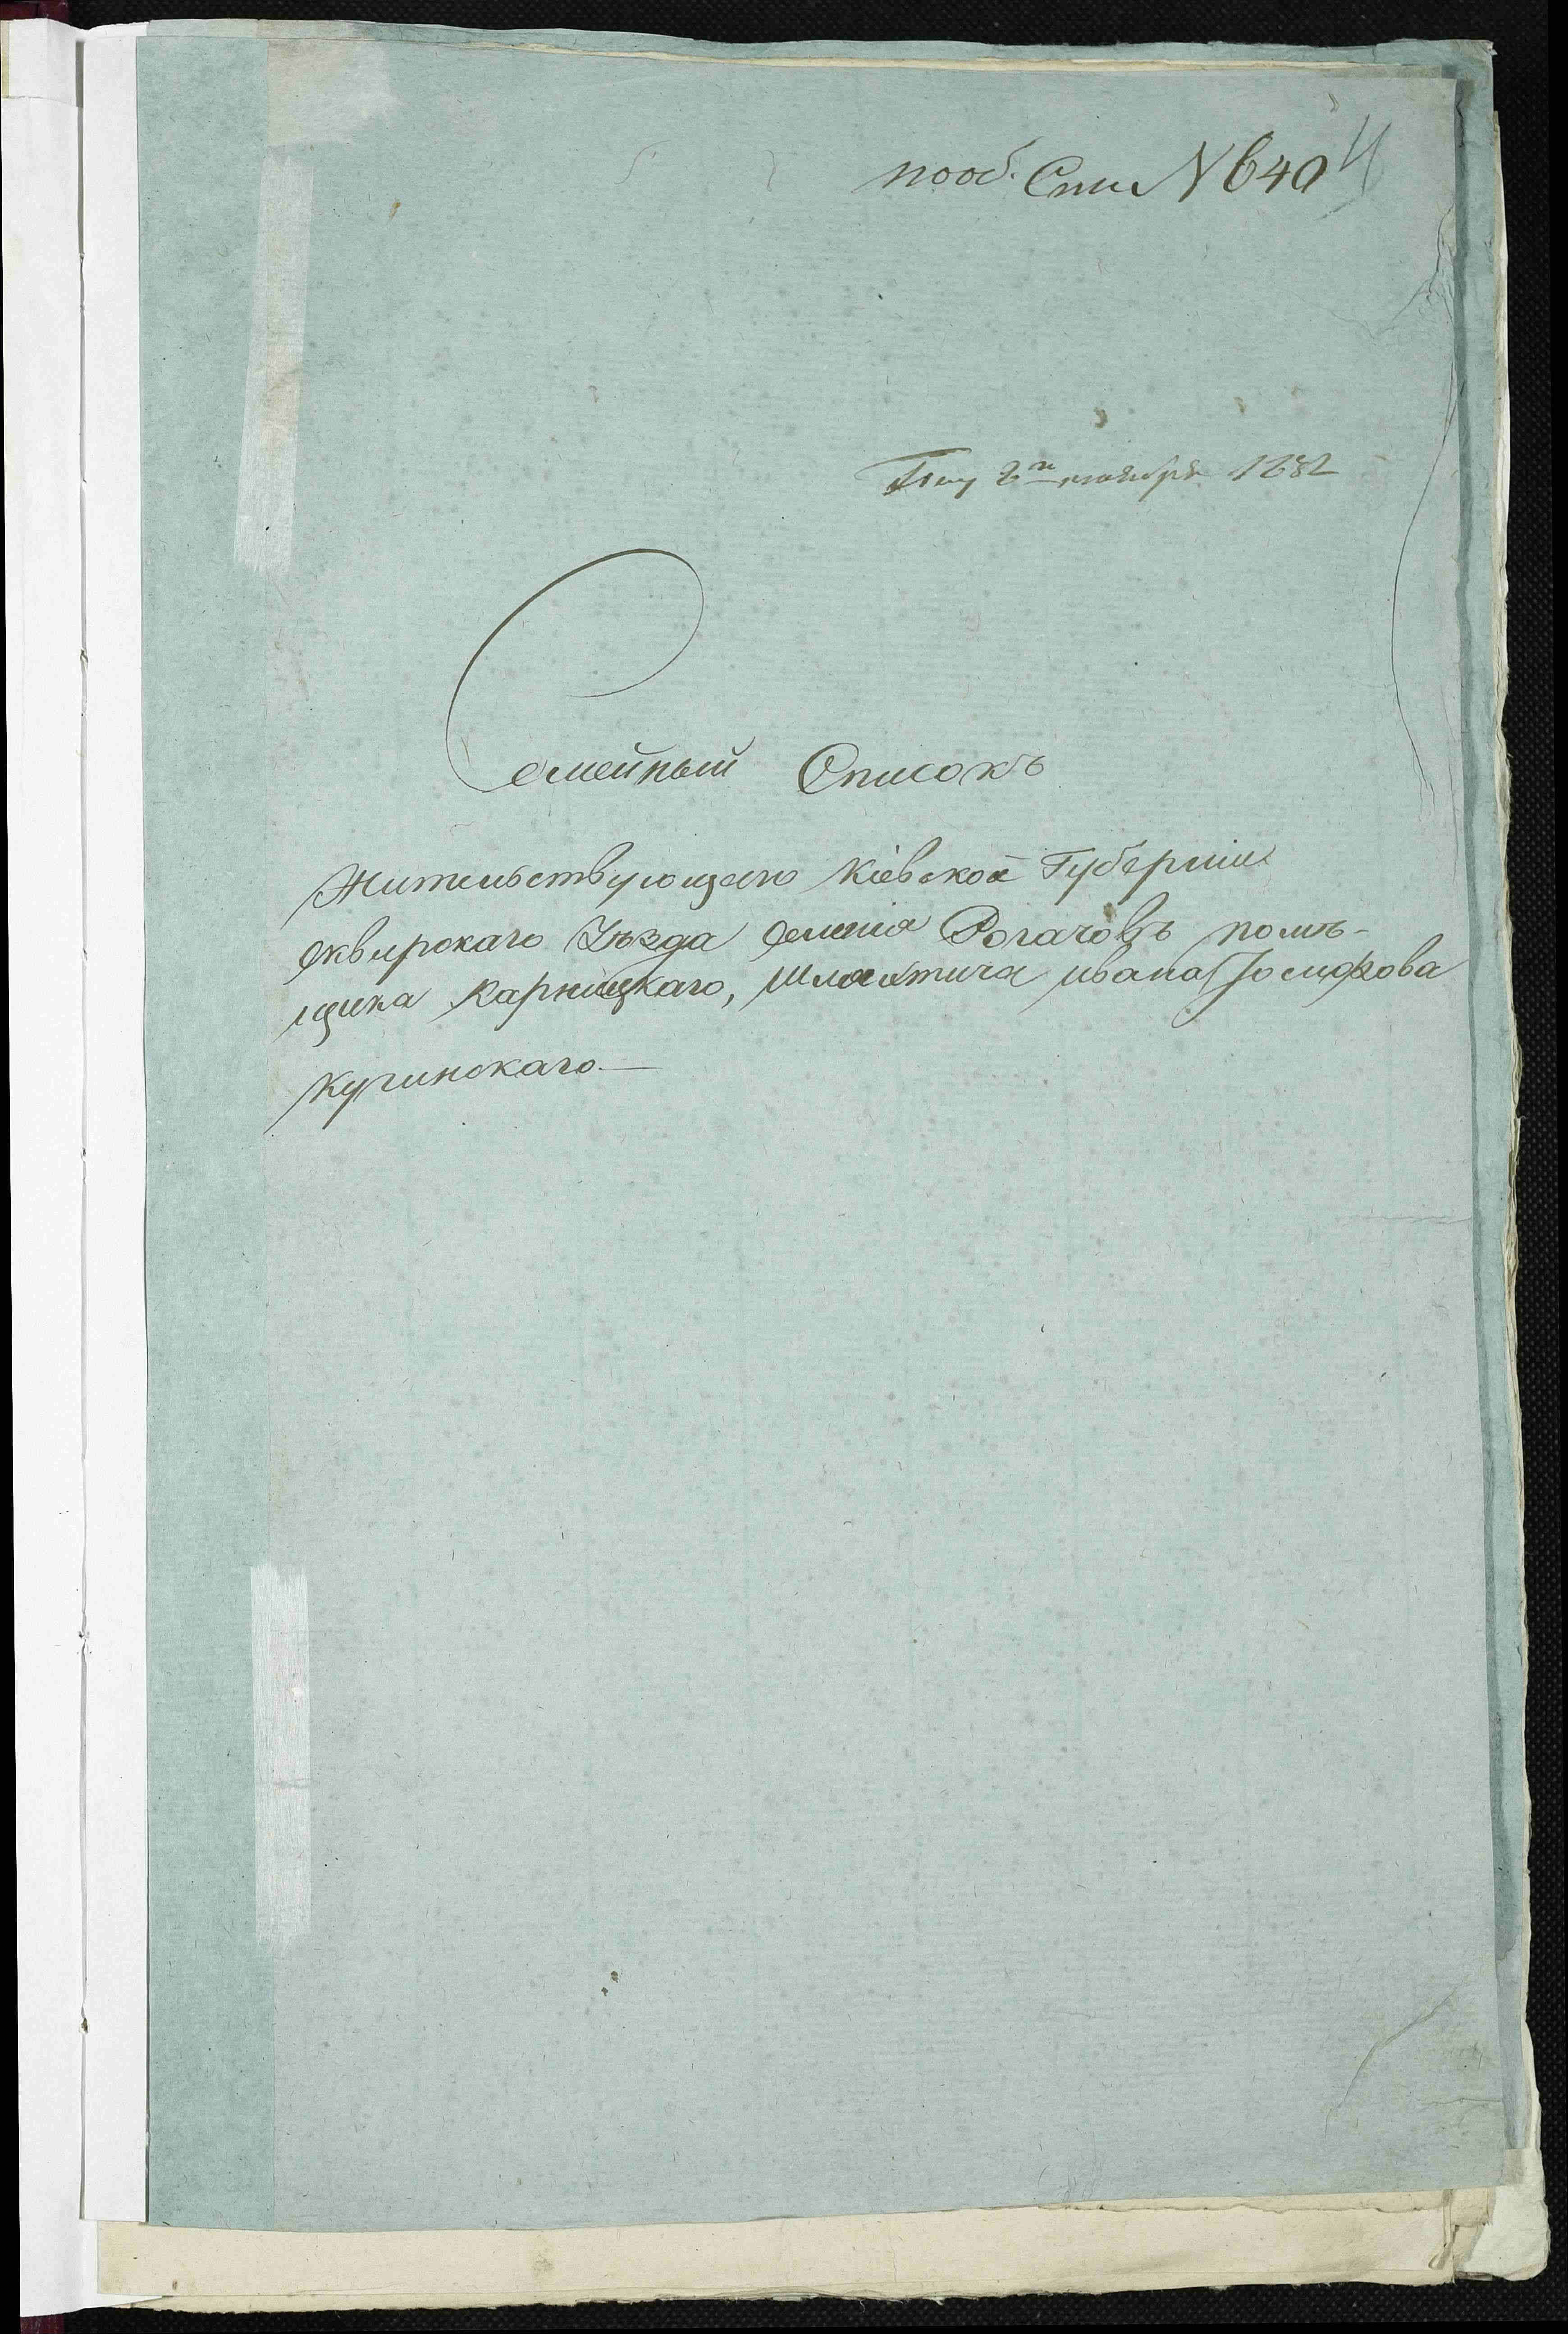 пооб. Спи N 640
8го октября 1832
Семейный Списокъ
Жительствующаго Кіевской Губерніи
сквирскаго Уѣзда селенія Рогачовъ помѣ-
щика Карницкаго, Шляхтича ивана Іосифова
Кучинскаго. —